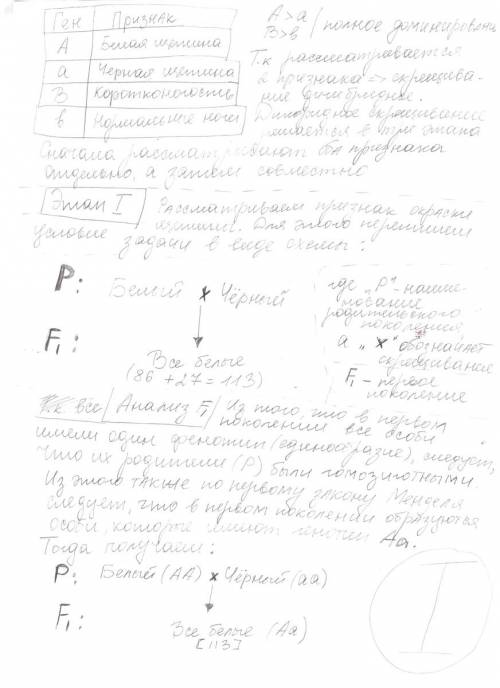 Ген Признак
А Белая щетина
а Чёрная щетина
В Коротконогость
в Нормальные ноги
А>а
В>в
полное доминирование
Т.к рассматривается
2 признака => скрещива-
ние дигибридное.
Дигибридное скрещивание
решается в три этапа
Сначала рассматривают оба признака
отдельно, а затем совместно
Этап I
Рассматриваем признак окраски
щетины. Для этого перепишем
условие задачи в виде схемы:
P: Белый x Чёрный
F₁:
Все белые
(86 + 27 = 113)
где "P" - наиме-
нование
родительского
поколения,
а "x" обозначает
скрещивание
F₁ - первое
поколение
Анализ F₁
Из того, что в первом
поколении все особи
имели один фенотип (единообразие), следует,
что их родители (P) были гомозиготными.
Из этого также по первому закону Менделя
следует, что в первом поколении образуются
особи, которые имеют генотип Аа.
Тогда получаем:
P: Белый (АА) x Чёрный (аа)
F₁:
Все белые (Аа)
[113]
I